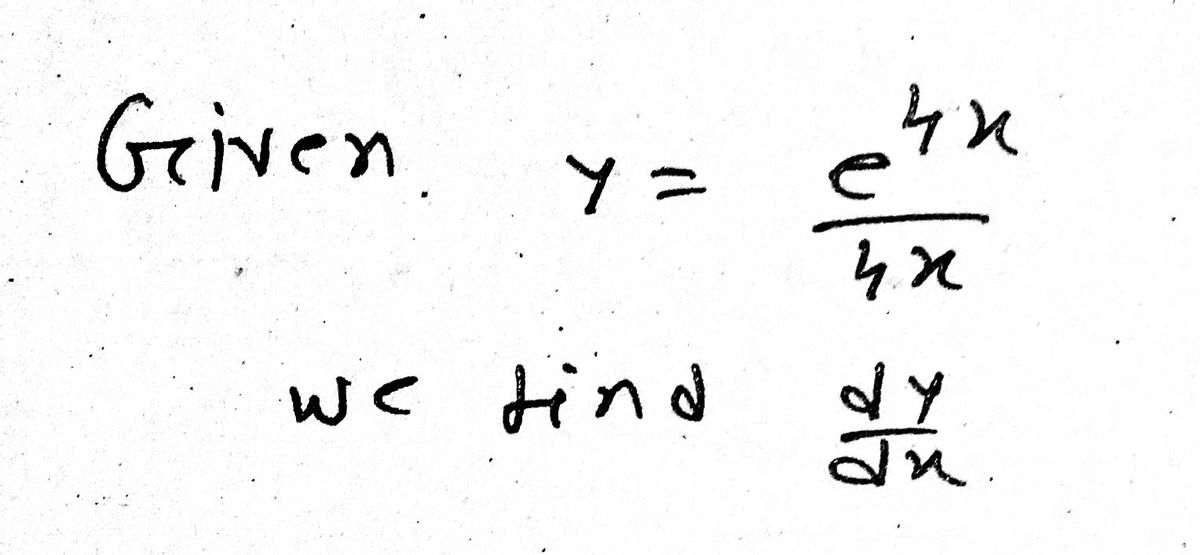 Given. y = e^{4x} / 4x
we find dy/dx.